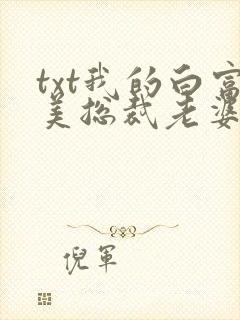 txt我的白富
美总裁老婆
倪军